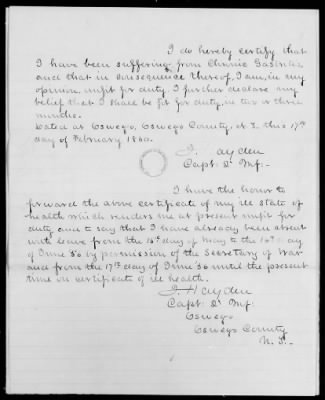 I do hereby certify that
I have been suffering from Chronic Gastritis,
and that in consequence thereof, I am, in my
opinion unfit for duty. I further declare my
belief that I shall be fit for duty, in two or three
months.
Dated at Oswego, Oswego County, N.Y. this 17th
day of February 1860.
J. Hayden
Capt. 2d Inf:-
I have the honor to
forward the above certificate of my ill state of
health which renders me at present unfit for
duty and to say that I have already been absent
with leave from the 15th day of May to the 16th day
of June 56 by permission of the Secretary of War
and from the 17th day of June 56 until the present
time on certificate of ill health.
J. Hayden
Capt. 2d Inf:
Oswego
Oswego County
N. Y.-